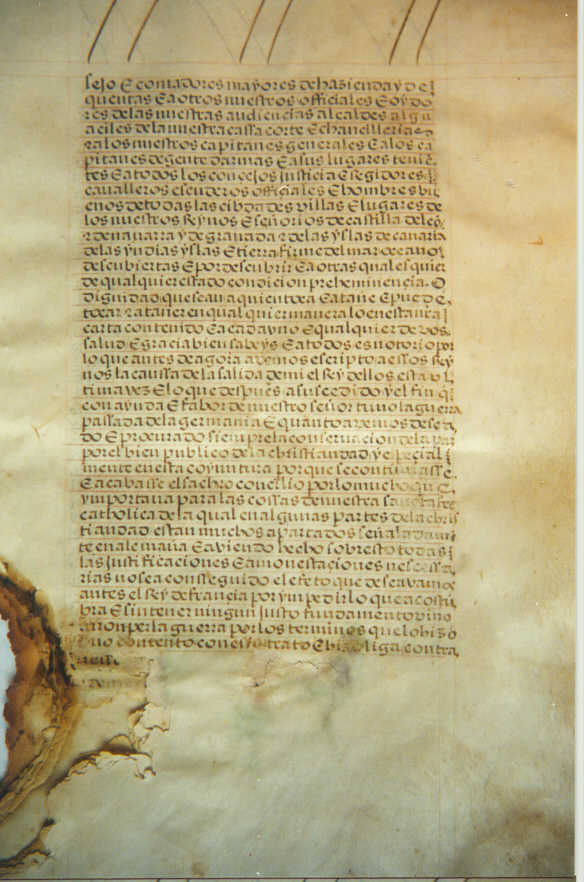 sejo E contadores mayores de hasienda y de
quentas E a otros nuestros officiales E oydo
res de las nuestras audiencias alcaldes algu
aciles de la nuestra cassa corte E chanelleria e
a los nuestros capitanes generales E a los ca
pitanes de gente darmas E a sus lugares teni
tes E a todos los concejos justicia E regidores
cavalleros escuderos officiales E hombres bu
enos de todas las cibdades villas E lugares de
los nuestros Reynos E señorios de castilla de leō
de navarra y de granada de las yslas de canaria
de las yndias yslas E tierra firme del mar oceano
descubiertas E por descubrir E a otras qualesquier
de qualquier estado condicion preheminencia. O
dignidad que sean a quien toca E atañe E puede
tocar atañer en qualquier manera lo en esta nra
carta contenido E a cada vno E qualquier de vos.
salud E gracia bien sabeys E a todos es notorio por
lo que antes de agora avemos escripto a essos Rey
nos la caussa de la salida de mi el Rey dellos esta vl
tima vez E lo que despues a susçedido y el fin q̄
con ayuda E fabor de nuestro señor tuvo la guerra
passada de la germania E quanto avemos desea
do E procurado siempre la conservacion de la paz
por el bien publico de la christiandad y especial
mente en esta coyuntura porque se continuasse.
E acabasse el sacro concilio por lo mucho que
ymportava para las cossas de nuestra santa fee
catholica de la qual en algunas partes de la chris
tiandad estan muchos apartados señaladamē
te en alemaña E aviendo hecho sobresto todas
las justificaciones E amonestaciones nescessa
rias no se a conseguido el efeto que deseavamos
antes el Rey de francia por ympedir lo que acostū
bra E sin tener ningun justo fundamento vino
a ronper la guerra por los terminos que lo hizo
E no contento con esso trato E hizo liga contra